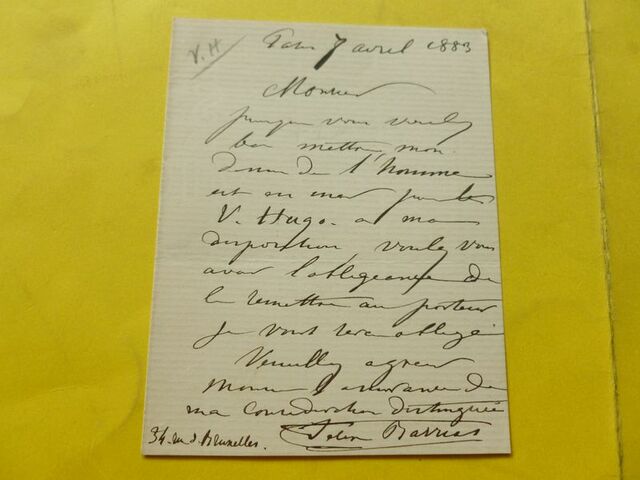 V. H
Paris 7 avril 1883
Monsieur
puisque vous voulez
bien mettre, mon
dessin de l'homme
est en mer pour les
V. Hugo. a ma
disposition, voulez vous
avoir l'obligeance de
le remettre au porteur
je vous serai obligé
Veuillez agréer
Monsieur l'assurance de
ma consideration distinguée
34. rue d. Bruxelles. Felix Barrias